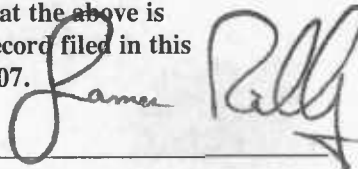 at the above is
record filed in this
07.
James